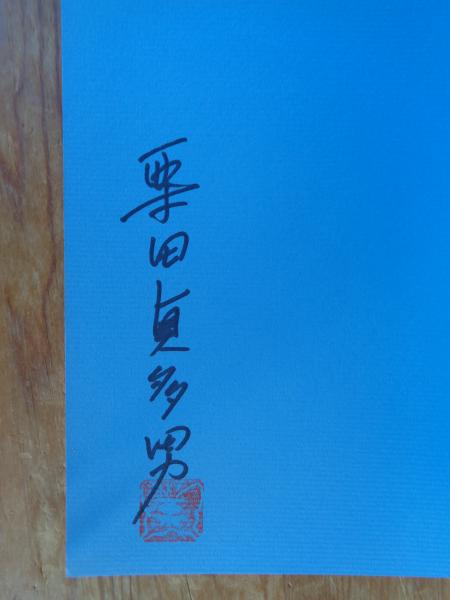 栗田貞多男